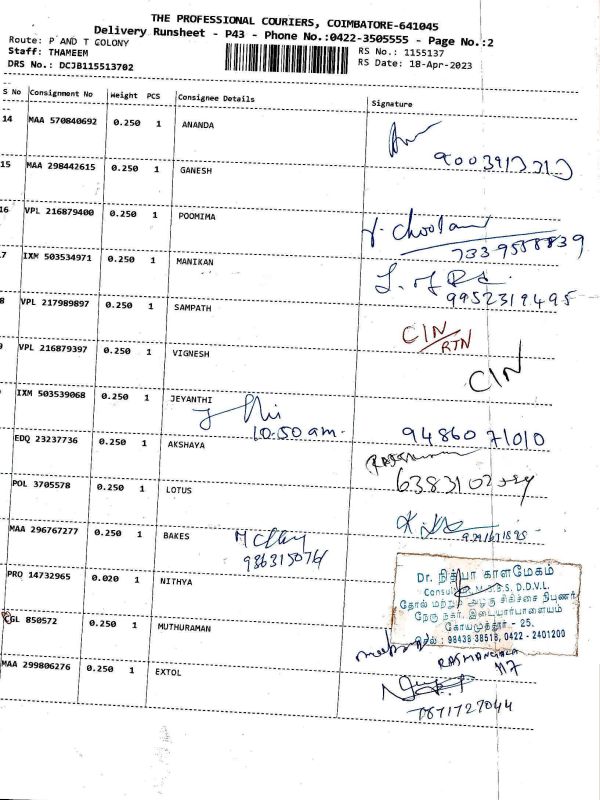 THE PROFESSIONAL COURIERS, COIMBATORE-641045
Delivery Runsheet - P43 - Phone No.:0422-3505555 - Page No.:2
Route: P AND T COLONY
Staff: THAMEEM
DRS No.: DCJB115513702
RS No.: 1155137
RS Date: 18-Apr-2023
S No Consignment No Weight PCS Consignee Details Signature
14 MAA 570840692 0.250 1 ANANDA
15 MAA 298442615 0.250 1 GANESH
16 VPL 216879400 0.250 1 POOMIMA
7339558839
7 IXM 503534971 0.250 1 MANIKAN
9952319495
8 VPL 217989897 0.250 1 SAMPATH
CIN/RTN
9 VPL 216879397 0.250 1 VIGNESH
CIN
IXM 503539068 0.250 1 JEYANTHI
10.50 am. 94860 71010
EDQ 23237736 0.250 1 AKSHAYA
POL 3705578 0.250 1 LOTUS
MAA 296767277 0.250 1 BAKES
PRO 14732965 0.020 1 NITHYA
Dr. நித்யா காளமேகம்
Consultant, M.B.B.S, D.D.V.L.
தோல் மற்றும் அழகு சிகிச்சை நிபுணர்
நேரு நகர், இடையார்பாளையம்
கோயமுத்தூர் - 25.
செல் : 98438 38518, 0422 - 2401200
CGL 850572 0.250 1 MUTHURAMAN
MAA 299806276 0.250 1 EXTOL
7871727044